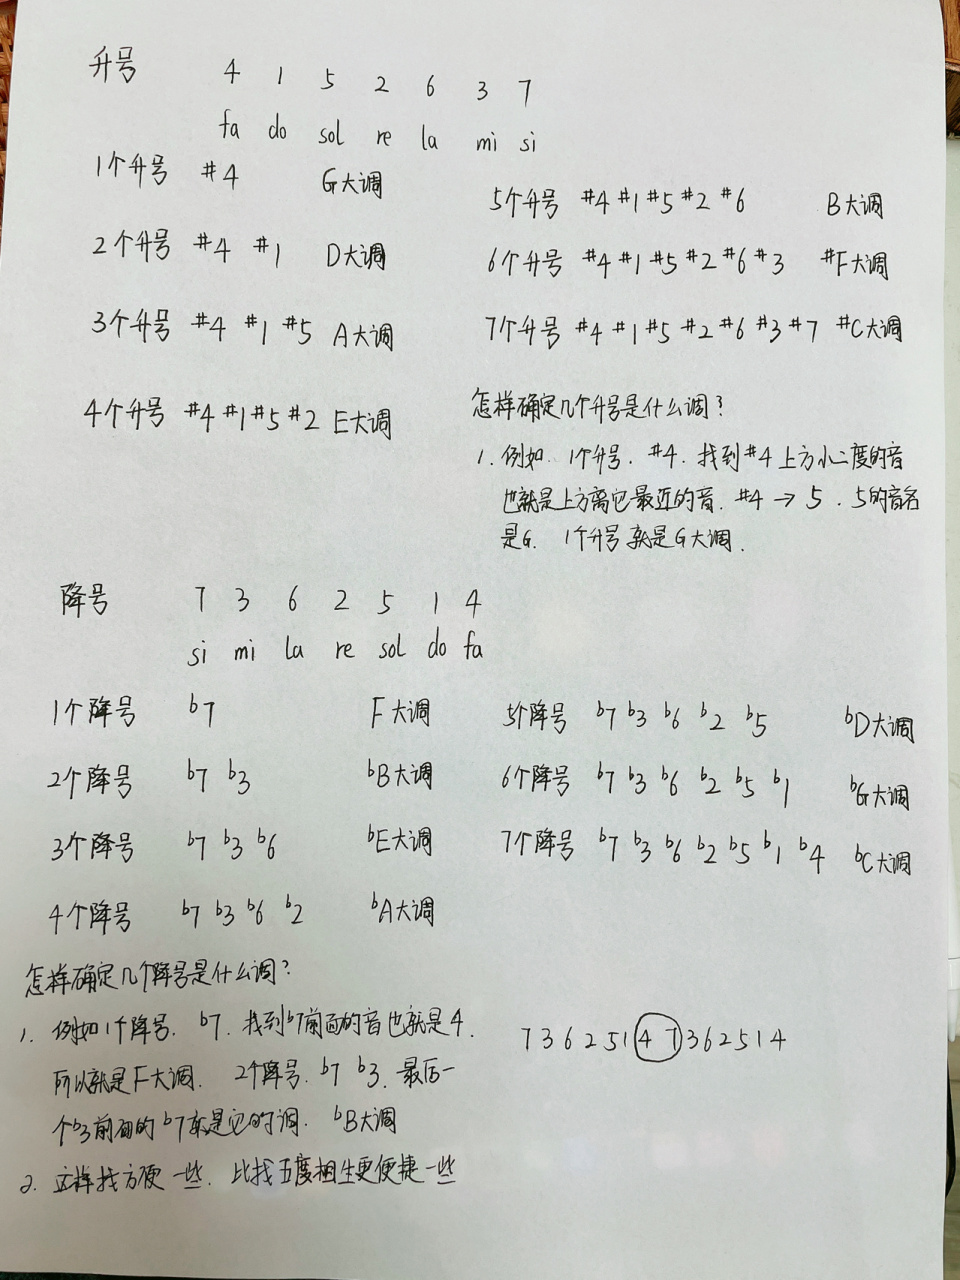 升号 4 1 5 2 6 3 7
fa do sol re la mi si
1个升号 #4 G大调
2个升号 #4 #1 D大调
3个升号 #4 #1 #5 A大调
4个升号 #4 #1 #5 #2 E大调
5个升号 #4 #1 #5 #2 #6 B大调
6个升号 #4 #1 #5 #2 #6 #3 #F大调
7个升号 #4 #1 #5 #2 #6 #3 #7 #C大调
怎样确定几个升号是什么调?
1. 例如. 1个升号. #4. 找到#4上方小二度的音
也就是上方离它最近的音. #4 → 5 . 5的音名
是G. 1个升号就是G大调.
降号 7 3 6 2 5 1 4
si mi la re sol do fa
1个降号 b7 F大调
2个降号 b7 b3 bB大调
3个降号 b7 b3 b6 bE大调
4个降号 b7 b3 b6 b2 bA大调
5个降号 b7 b3 b6 b2 b5 bD大调
6个降号 b7 b3 b6 b2 b5 b1 bG大调
7个降号 b7 b3 b6 b2 b5 b1 b4 bC大调
怎样确定几个降号是什么调?
1. 例如1个降号. b7. 找到b7前面的音也就是4.
所以就是F大调. 2个降号. b7 b3. 最后一
个b3前面的b7就是它的调. bB大调
2. 这样找方便一些. 比找五度相生更便捷一些
7 3 6 2 5 1 4 7 3 6 2 5 1 4